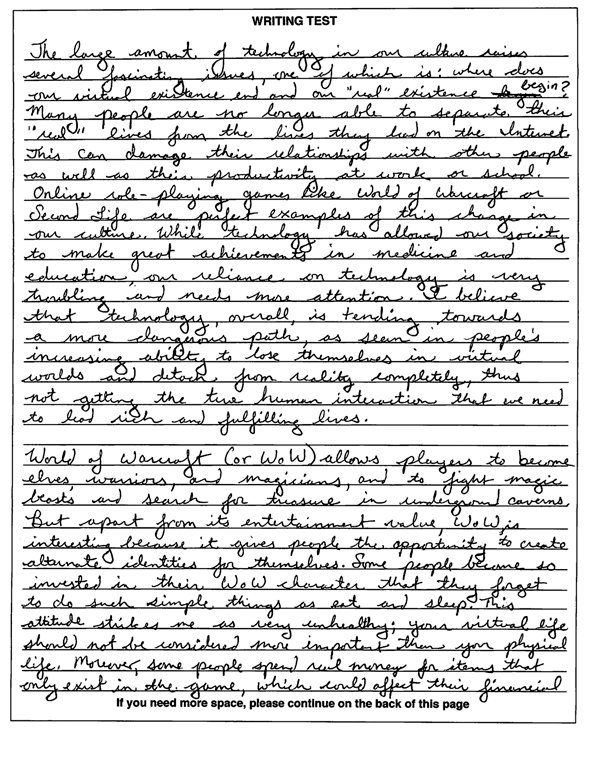 WRITING TEST
The large amount of technology in our culture raises
several fascinating issues, one of which is: where does
our virtual existence end and our "real" existence begin?
Many people are no longer able to separate their
"real" lives from the lives they lead on the Internet.
This can damage their relationships with other people
as well as their productivity at work or school.
Online role-playing games like World of Warcraft or
Second Life are perfect examples of this change in
our culture. While technology has allowed our society
to make great achievements in medicine and
education, our reliance on technology is very
troubling and needs more attention. I believe
that technology, overall, is tending towards
a more dangerous path, as seen in people's
increasing ability to lose themselves in virtual
worlds and detach from reality completely, thus
not getting the true human interaction that we need
to lead rich and fulfilling lives.
World of Warcraft (or WoW) allows players to become
elves, warriors, and magicians, and to fight magic
beasts and search for treasure in underground caverns.
But apart from its entertainment value, WoW is
interesting because it gives people the opportunity to create
alternate identities for themselves. Some people become so
invested in their WoW character that they forget
to do such simple things as eat and sleep. This
attitude strikes me as very unhealthy; your virtual life
should not be considered more important than your physical
life. Moreover, some people spend real money for items that
only exist in the game, which could affect their financial
If you need more space, please continue on the back of this page